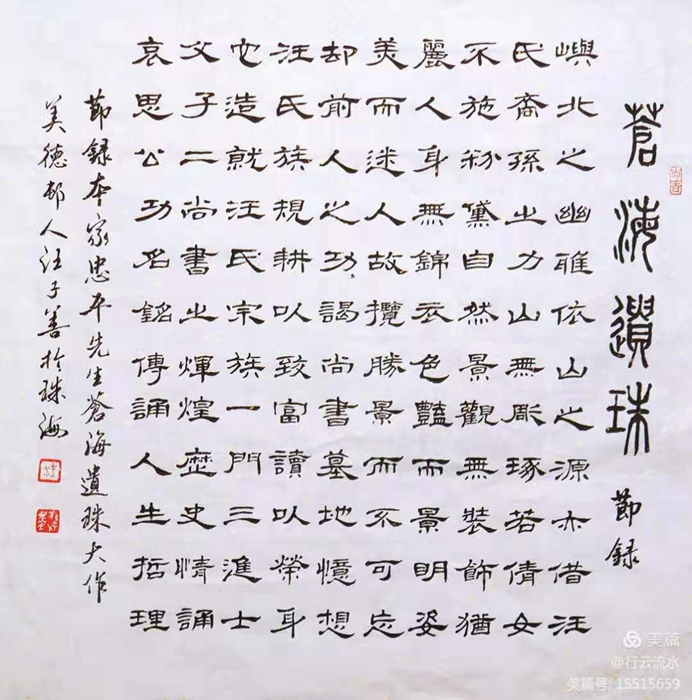 蒼海遺珠 節録
嶼北之幽雖依山之源亦借汪
氏裔孫之力山無彫琢若倩女
不施粉黛自然景觀無裝飾猶
麗人身無錦衣色豔而景明姿
美而迷人故攬勝景而不可忘
却前人之功謁尚書墓地憶想
汪氏族規耕以致富讀以榮身
它造就汪氏宗族一門三進士
父子二尚書之輝煌歷史情誦
哀思公功名銘傳誦人生哲理
節録本家忠平先生蒼海遺珠大作
美德邨人汪子善於珠海
美篇
@行云流水
美篇号: 15515659